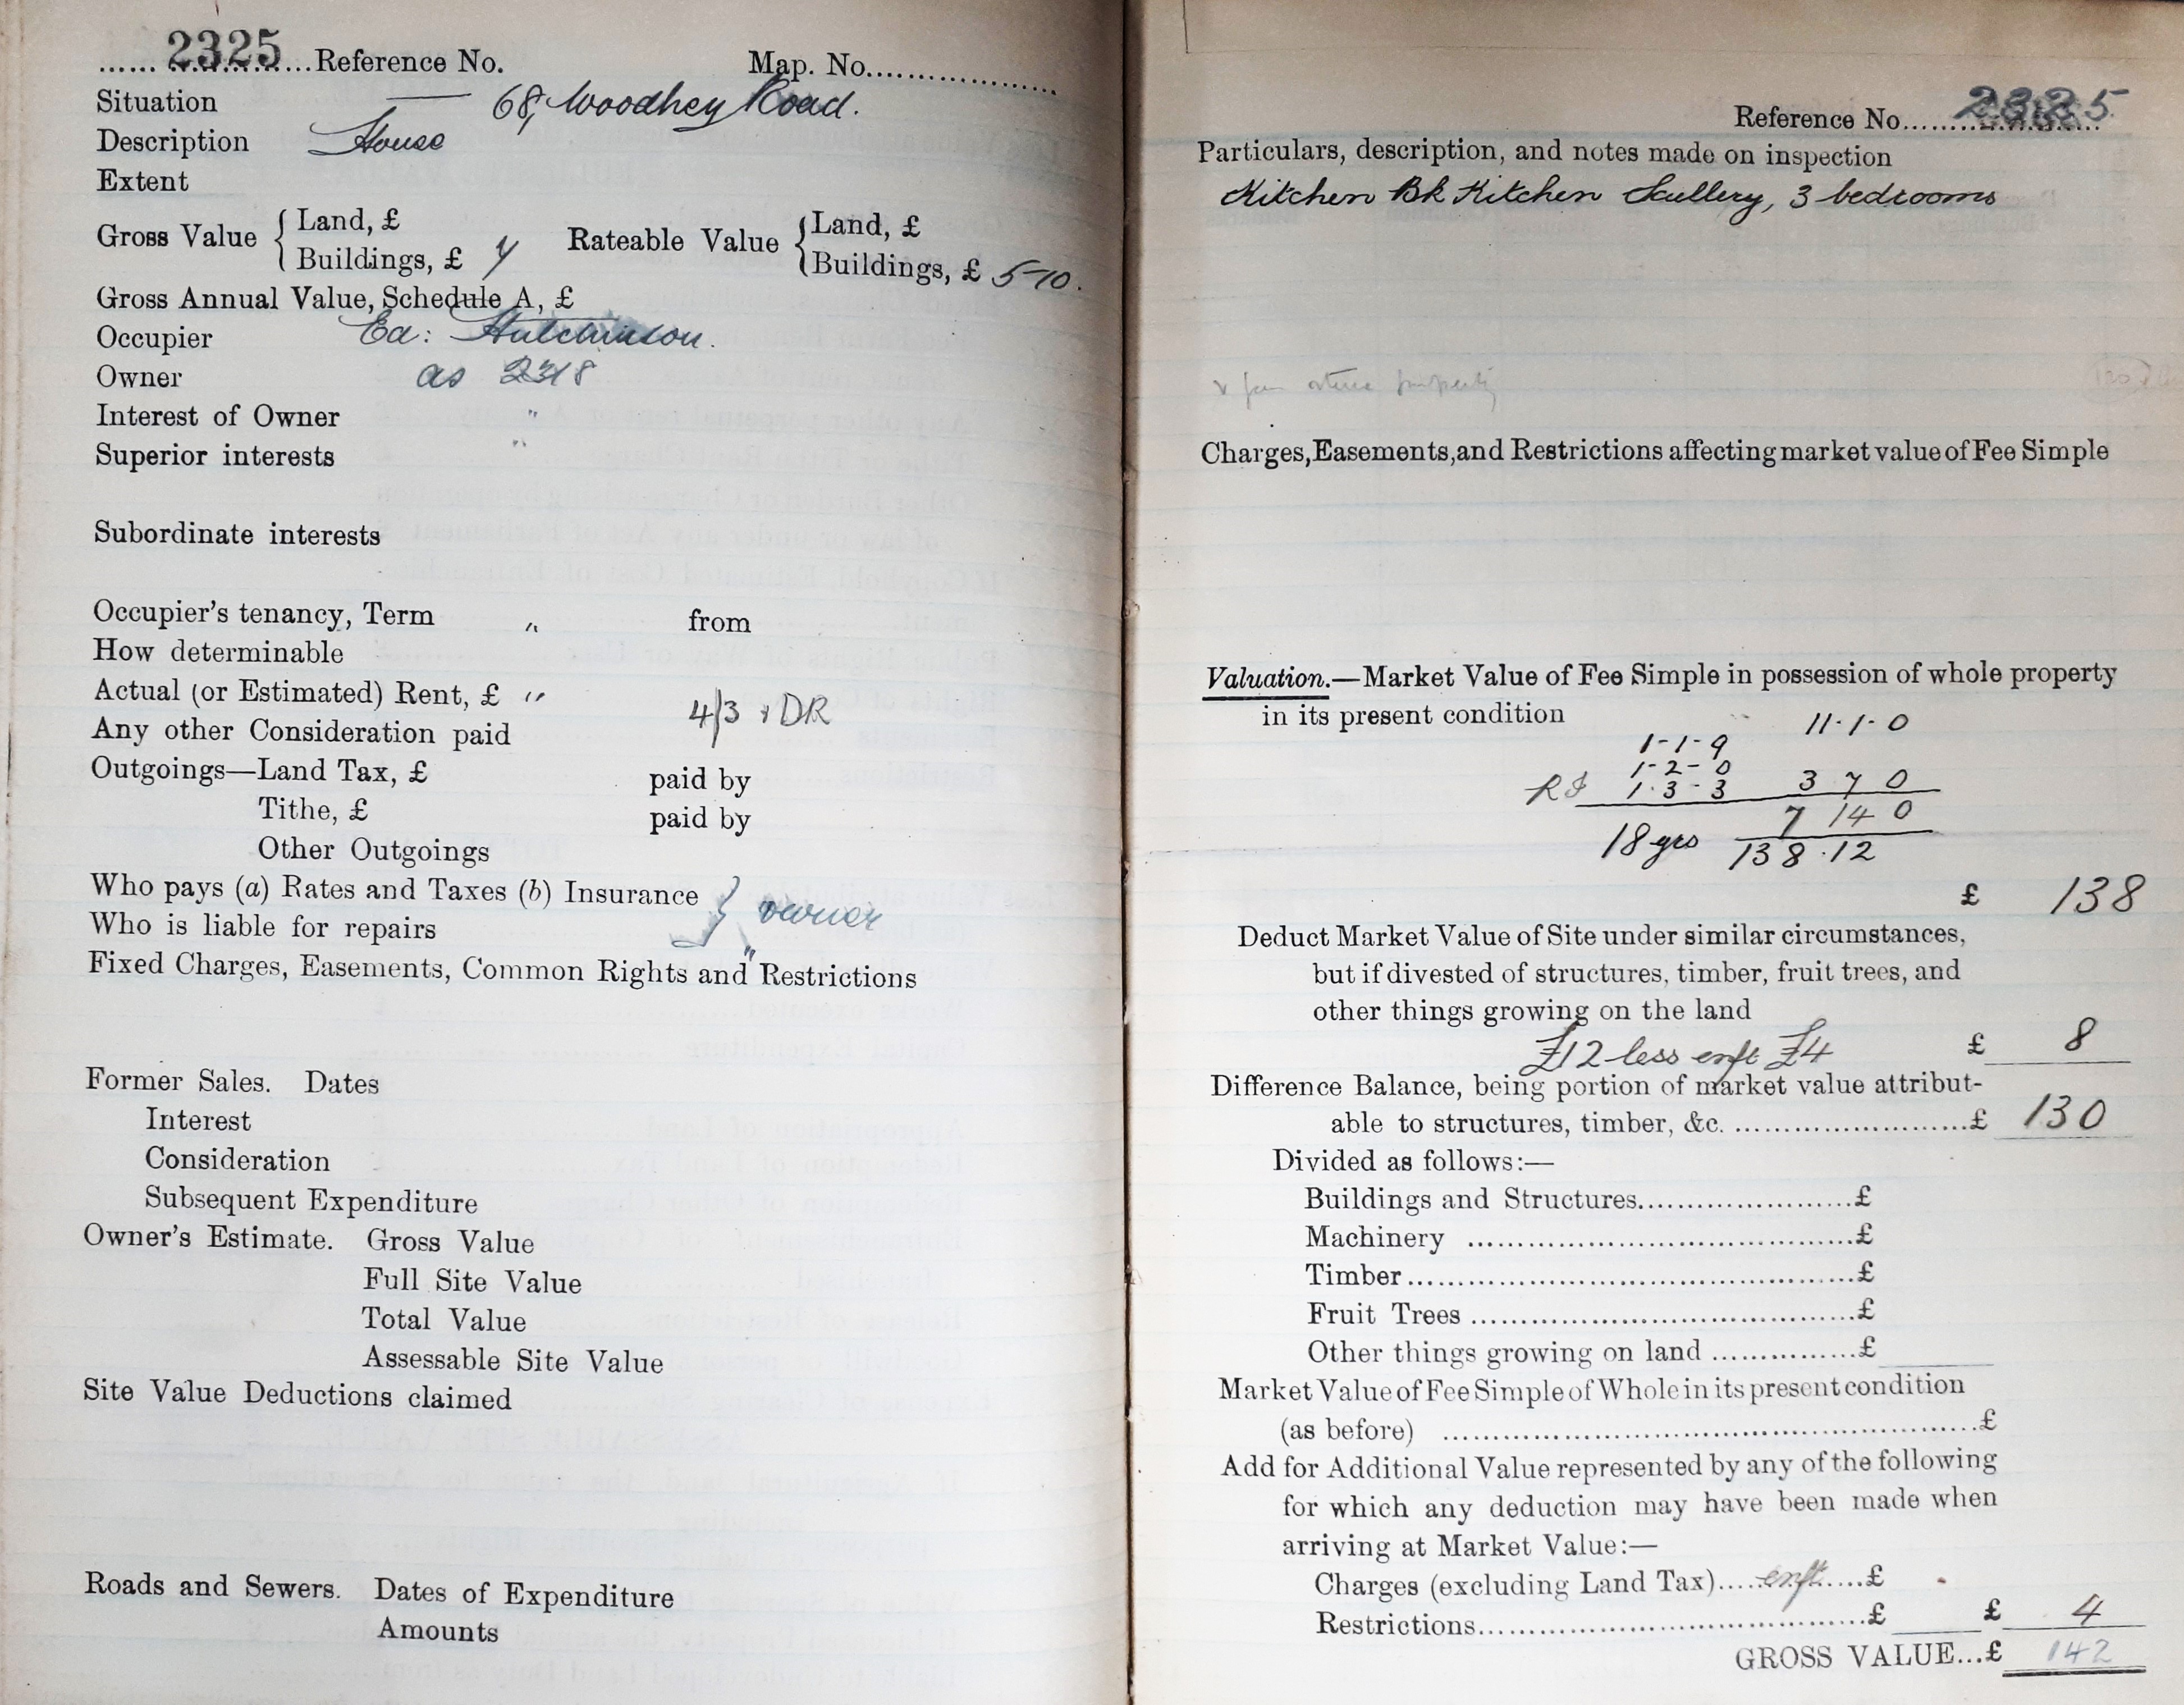 ...... 2325 ...Reference No. Map. No..................
Situation — 68, Woodhey Road.
Description House
Extent
Gross Value { Land, £
Buildings, £ 7
Rateable Value { Land, £
Buildings, £ 5-10.
Gross Annual Value, Schedule A, £
Occupier Ed: Hutchinson.
Owner as 2318
Interest of Owner "
Superior interests "
Subordinate interests
Occupier's tenancy, Term " from
How determinable
Actual (or Estimated) Rent, £ "
4/3 & DR
Any other Consideration paid
Outgoings—Land Tax, £ paid by
Tithe, £ paid by
Other Outgoings
Who pays (a) Rates and Taxes (b) Insurance } owner
Who is liable for repairs
Fixed Charges, Easements, Common Rights and Restrictions "
Former Sales. Dates
Interest
Consideration
Subsequent Expenditure
Owner's Estimate. Gross Value
Full Site Value
Total Value
Assessable Site Value
Site Value Deductions claimed
Roads and Sewers. Dates of Expenditure
Amounts
Reference No...... 2325
Particulars, description, and notes made on inspection
Kitchen Bk Kitchen Scullery, 3 bedrooms
property
Charges, Easements, and Restrictions affecting market value of Fee Simple
Valuation.—Market Value of Fee Simple in possession of whole property
in its present condition 11-1-0
1-1-9
1-2-0
1-3-3 3 7 0
7 14 0
18 yrs 138.12
£ 138
Deduct Market Value of Site under similar circumstances,
but if divested of structures, timber, fruit trees, and
other things growing on the land
£12 less enft £4 £ 8
Difference Balance, being portion of market value attribut-
able to structures, timber, &c. ...........................£ 130
Divided as follows:—
Buildings and Structures......................£
Machinery .......................................£
Timber.............................................£
Fruit Trees .......................................£
Other things growing on land ...............£
Market Value of Fee Simple of Whole in its present condition
(as before) .......................................................£
Add for Additional Value represented by any of the following
for which any deduction may have been made when
arriving at Market Value:—
Charges (excluding Land Tax)....enft.....£
Restrictions.......................................£ £ 4
GROSS VALUE...£ 142